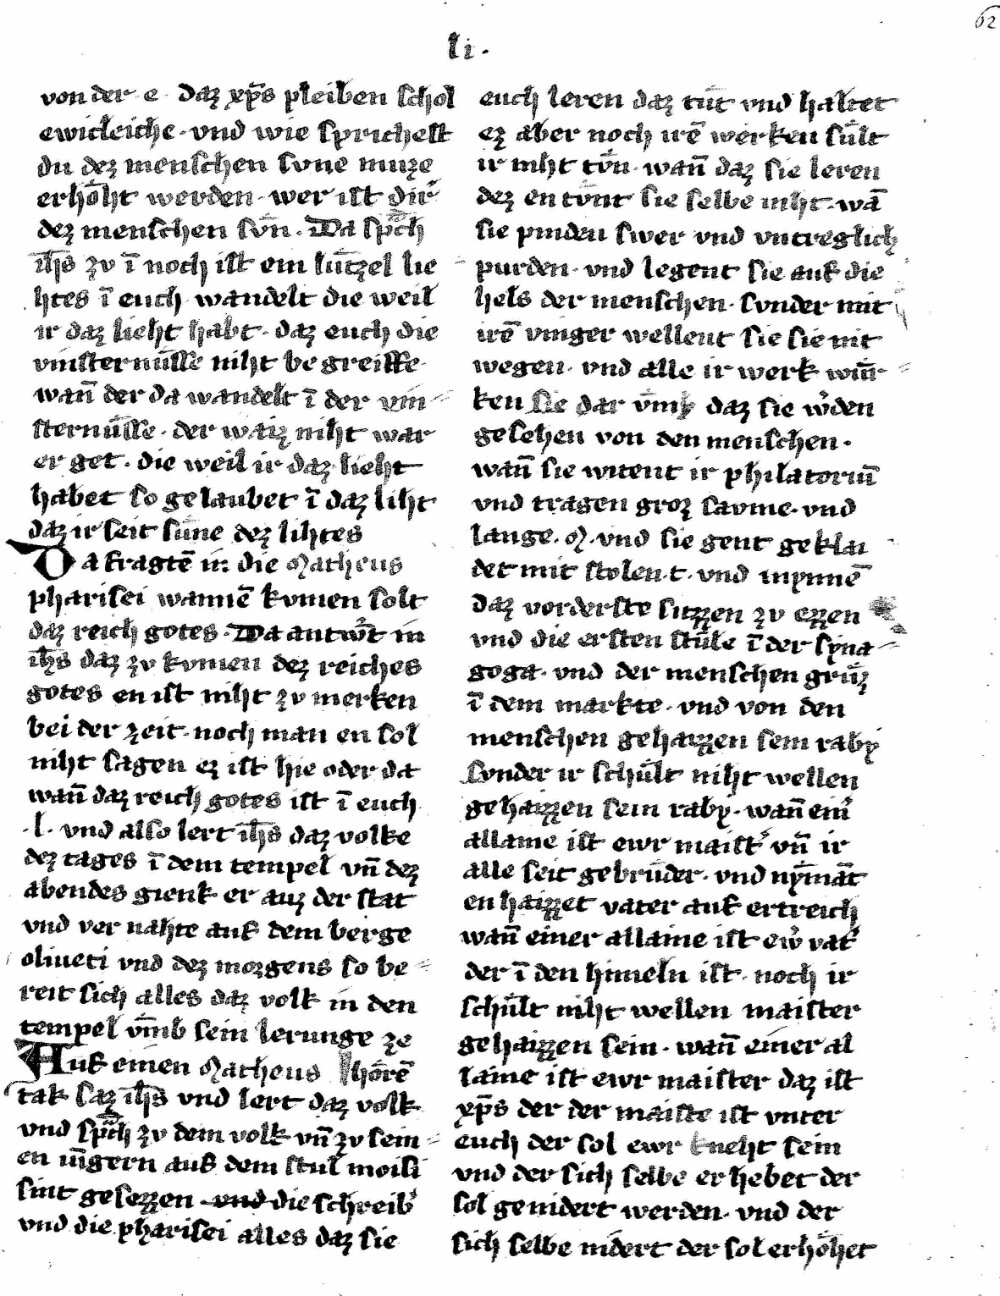 62
li.
von der e daz xp̄s pleiben schol
ewicleiche. vnd wie sprichest
du dez menschen svne muze
erhoͤht werden. wer ist dir
dez menschen svn. Da sp̄ch
ih̄s zv ī noch ist ein lützel lie
htes ī euch wandelt die weil
ir daz lieht habt. daz euch die
vinsternüsse niht be greiffe.
wan̄ der da wandelt ī der vin
sternüsse. der waiz niht war
er get. die weil ir daz lieht
habet so gelaubet ī daz liht
daz ir seit süne dez lihtes
Da fragtē in die Matheus
pharisei wannē kvmen solt
daz reich gotes. Da antw̓t in
ih̄s daz zv kvmen dez reiches
gotes en ist niht zv merken
bei der zeit. noch man en sol
niht sagen ez ist hie oder da
wan̄ daz reich gotes ist ī euch
.l. vnd also lert ih̄s daz volke
dez tages ī dem tempel vn̄ dez
abendes gienk er auz der stat
vnd ver nahte auf dem berge
oliueti vnd dez morgens so be
reit sich alles daz volk in den
tempel vm̄b sein lerunge ze
Auf einen Matheus hoͤrē
tak saz ih̄s vnd lert daz volk
vnd sp̄ch zv dem volk vn̄ zv sein
en iūgern auf dem stul moisi
sint gesezzen vnd die schreib̓
vnd die pharisei alles daz sie
euch leren daz tüt vnd haltet
ez aber noch irē werken sült
ir niht tvͤn. wan̄ daz sie leren
dez en tvͤnt sie selbe niht. wā
sie pinden swer vnd vntreglich
purden. vnd legent sie auf die
hels der menschen. svnder mit
irē vinger wellent sie sie nit
wegen. vnd alle ir werk wür
ken sie dar vm̄b daz sie w̓den
gesehen von den menschen.
wan̄ sie witent ir philatoriū
vnd tragen groz savme. vnd
lange. M. vnd sie gent geklai
det mit stolen. t. vnd mynnē
daz vorderste sitzzen zv ezzen
vnd die ersten stüle ī der syna
goga. vnd der menschen grüz
ī dem markte. vnd von den
menschen gehaizzen sein raby
Svnder ir schült niht wellen
gehaizzen sein raby. wan̄ ein̓
allaine ist ewr maist̓ vn̄ ir
alle seit gebrüder. vnd nymāt
en haizzet vater auf ertreich
wan̄ einer allaine ist ew̓ vat̓
der ī den himeln ist. noch ir
schült niht wellen maister
gehaizzen sein. wan̄ einer al
laine ist ewr maister daz ist
xp̄s der der maiste ist vnter
euch der sol ewr kneht sein
vnd der sich selbe erhebet der
sol genidert werden. vnd der
sich selbe nidert der sol erhoͤhet